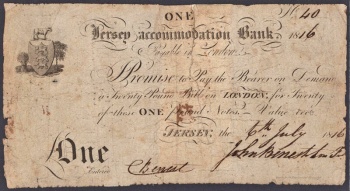 ONE
No. 40
Jersey accommodation Bank 1816
Payable in London
I Promise to Pay the Bearer on Demand
a Twenty Pound Bill on LONDON, for Twenty
of these ONE Pound Notes. Value
JERSEY, the 6th July 1816
One
Entered
John Benest